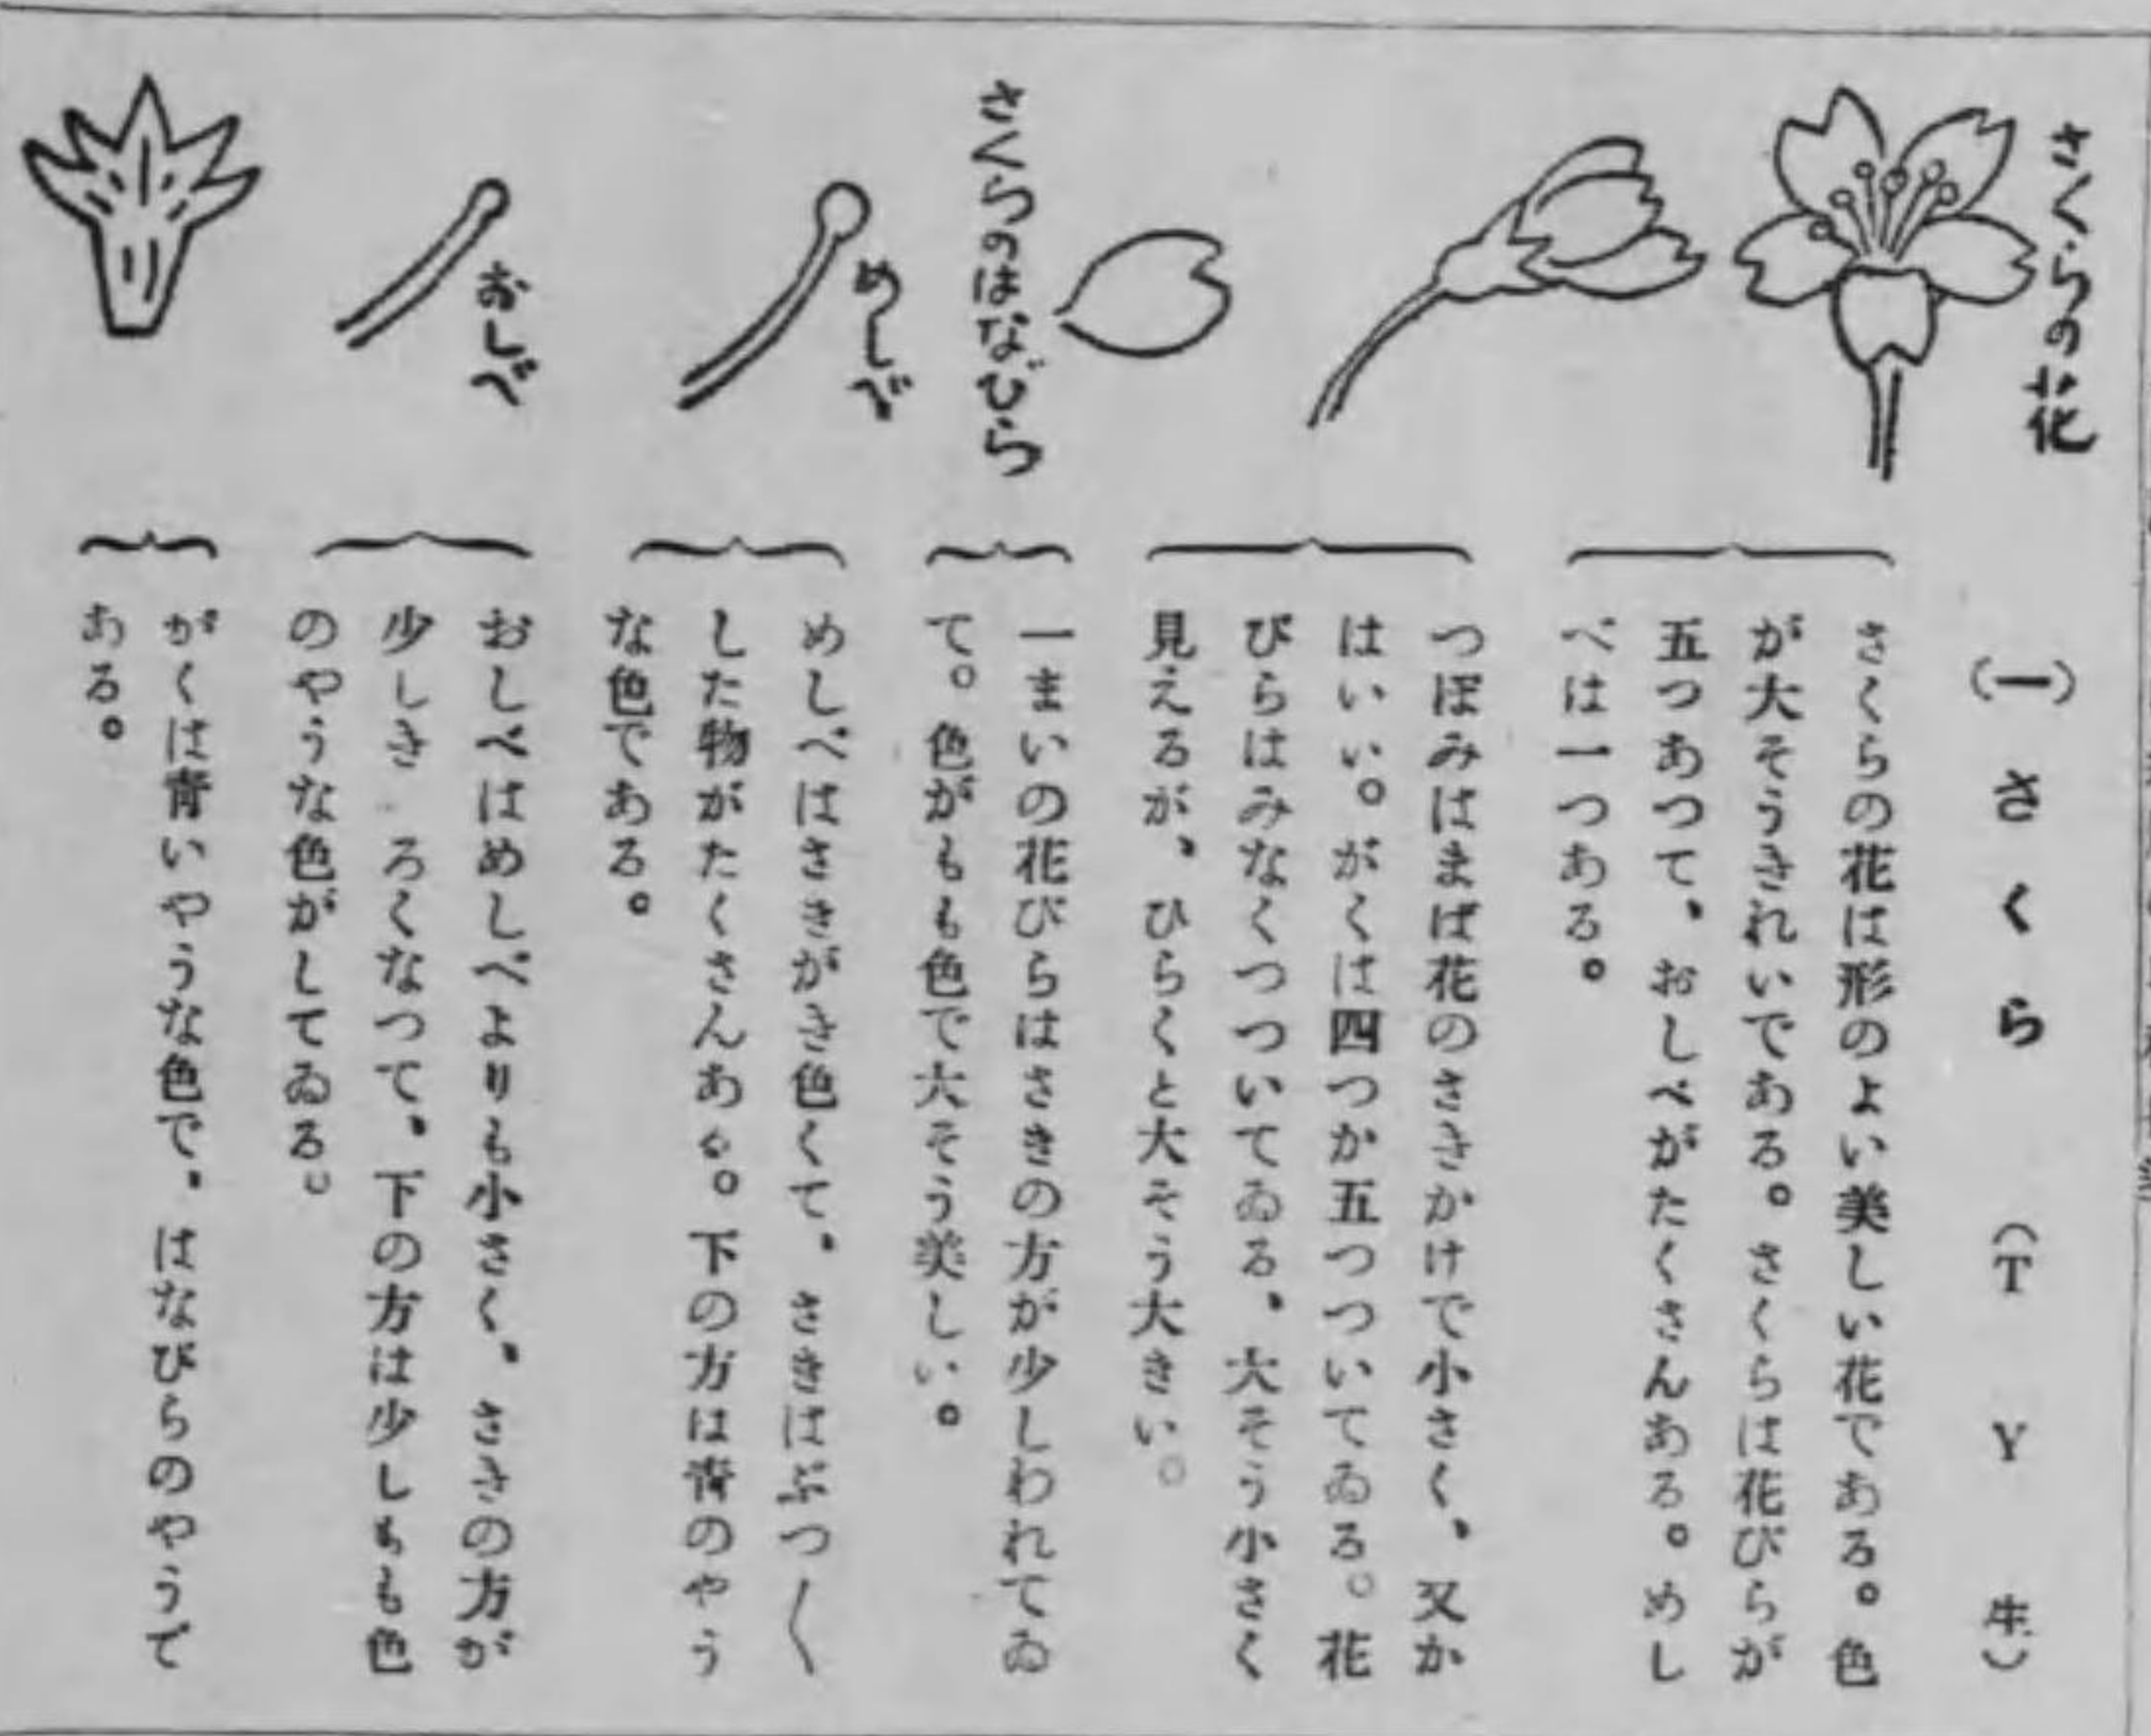 さくらの花
さくらのはなびら
めしべ
おしべ
(一) さくら (TY生)
さくらの花は形のよい美しい花である。色
が大そうきれいである。さくらは花びらが
五つあつて、おしべがたくさんある。めし
べは一つある。
つぼみはまば花のさきかけで小さく、又か
はいい。がくは四つか五つついてゐる。花
びらはみなくつついてゐる、大そう小さく
見えるが、ひらくと大そう大きい。
一まいの花びらはさきの方が少しわれてゐ
て。色がもも色で大そう美しい。
めしべはさきがき色くて、さきはぶつ〳〵
した物がたくさんあ。下の方は青のやう
な色である。
おしべはめしべよりも小さく、さきの方が
少しき ろくなつて、下の方は少しもも色
のやうな色がしてゐる。
がくは青いやうな色で、はなびらのやうで
ある。